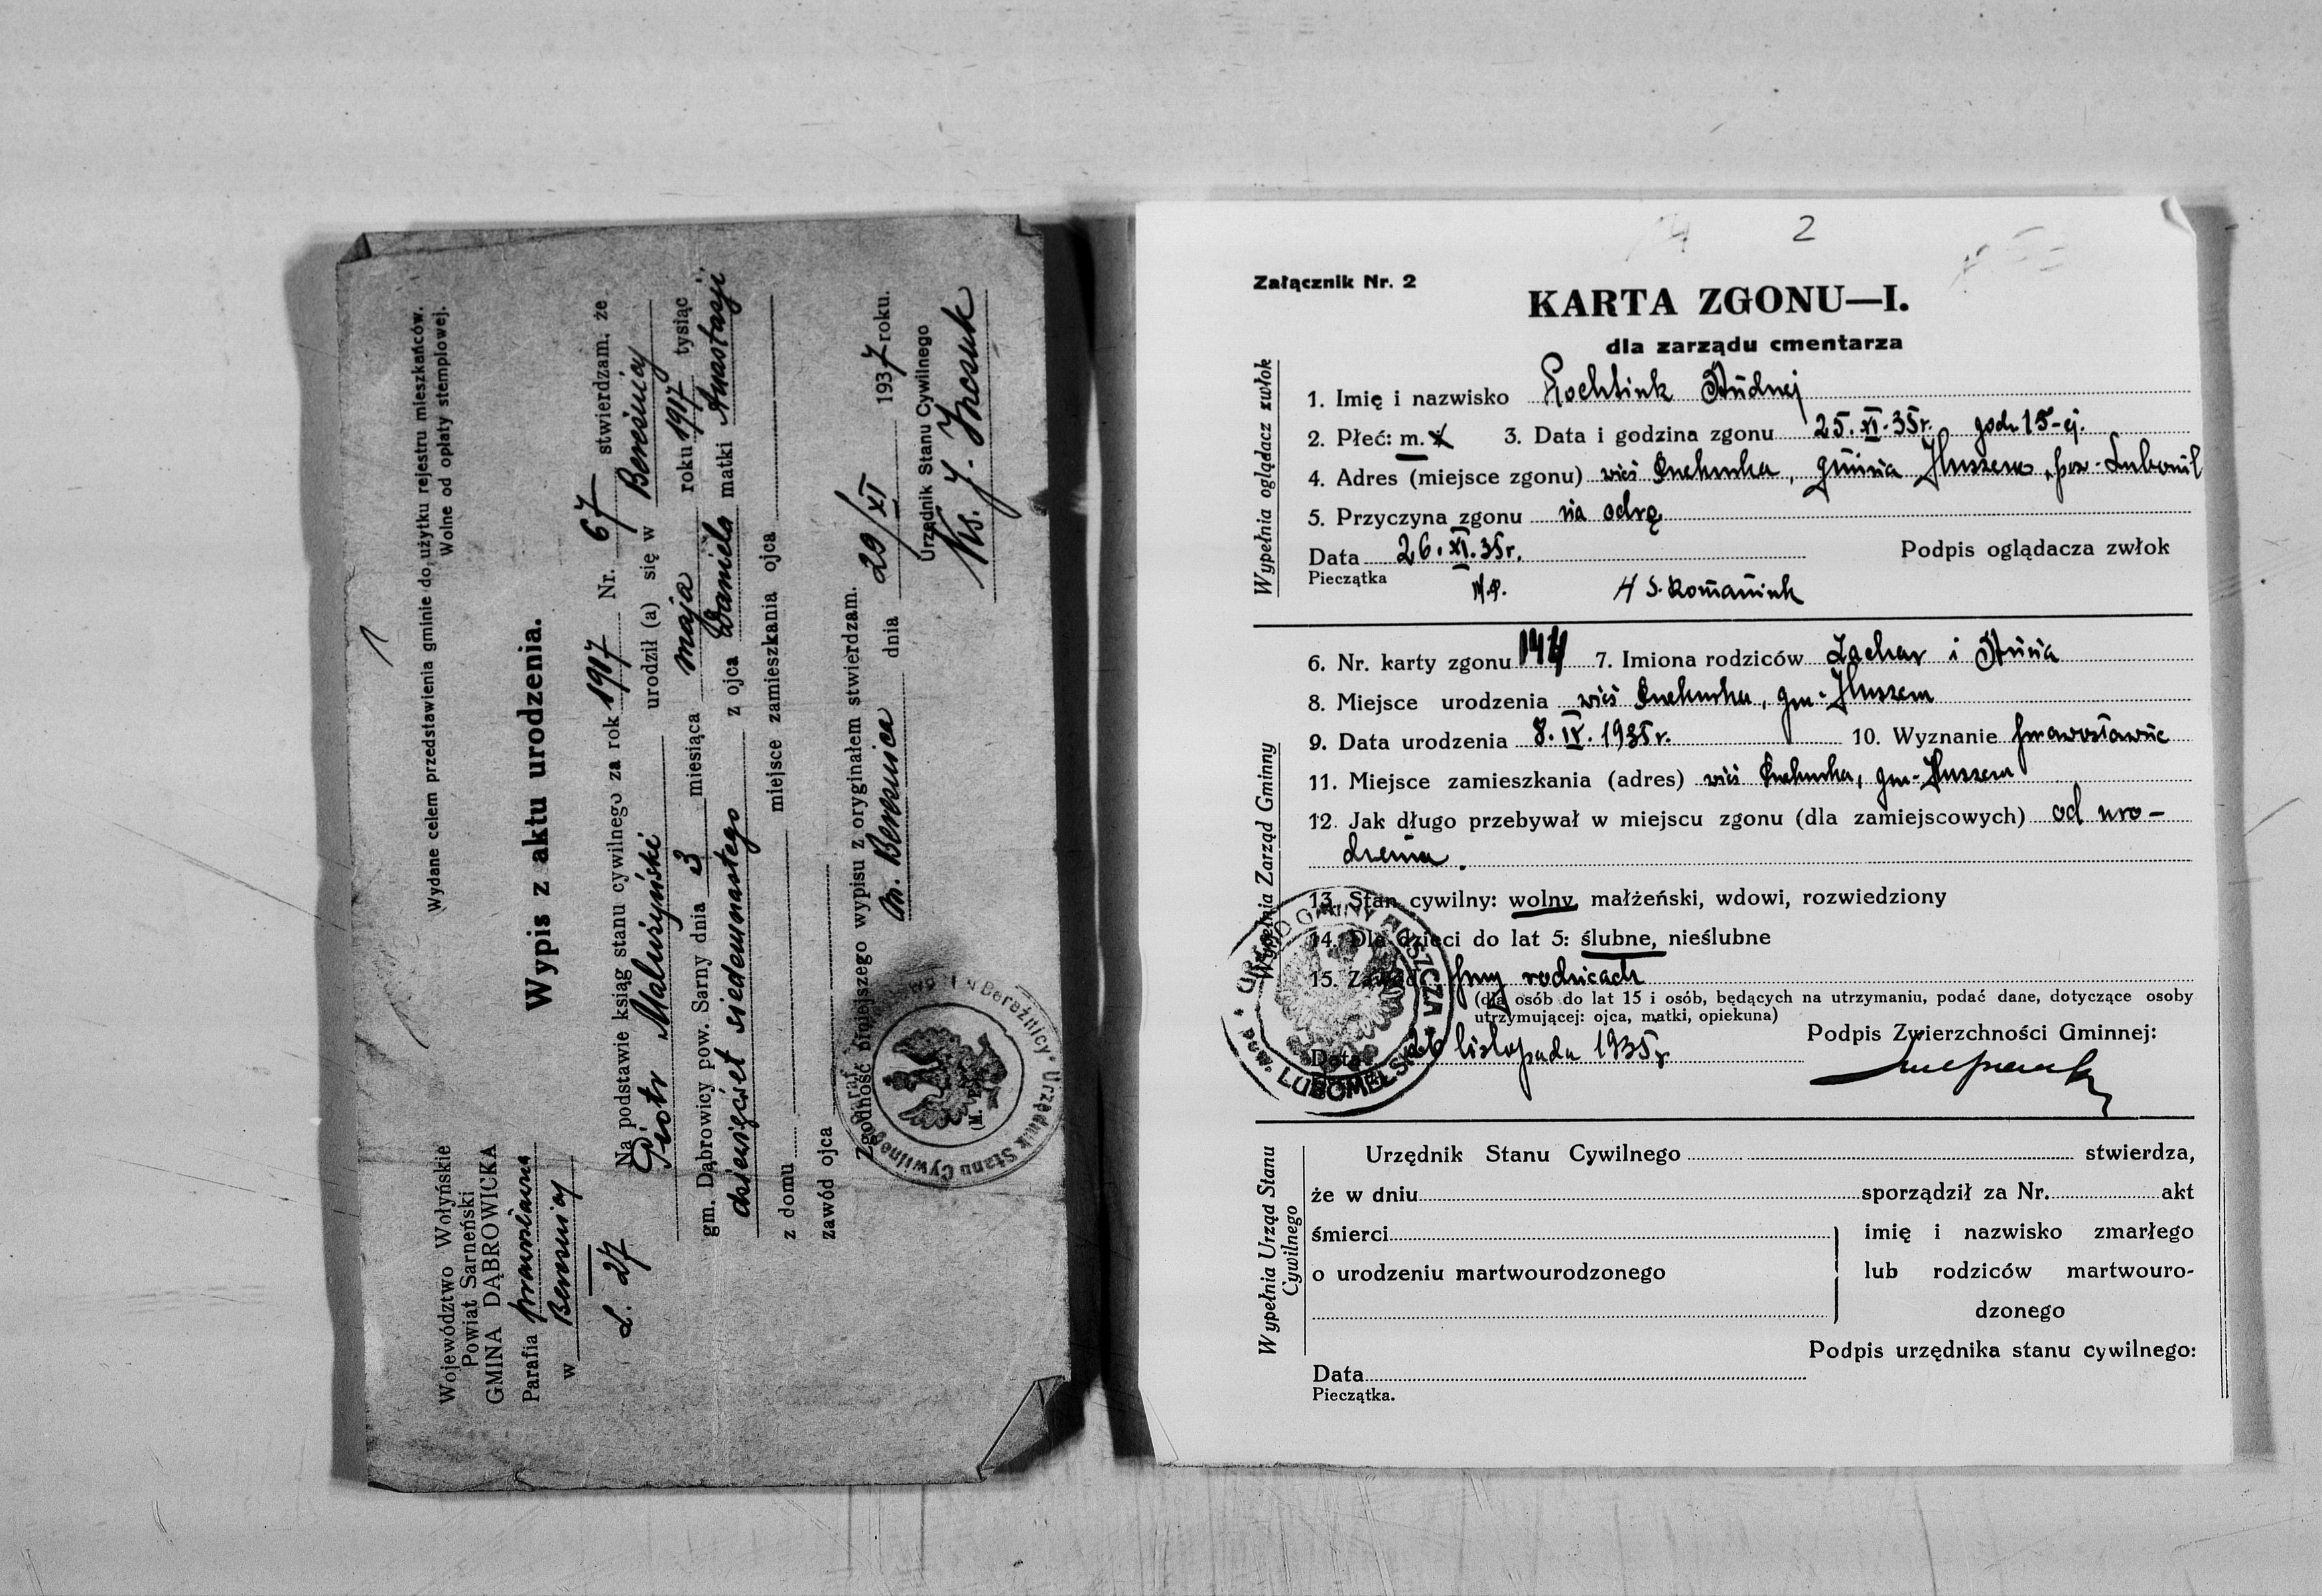 1
Wydane celem przedstawienia gminie do użytku rejestru mieszkańców.
Wolne od opłaty stemplowej.
Województwo Wołyńskie
Powiat Sarneński
GMINA DĄBROWICKA
Parafia prawosławna
w Bereźnicy
L. 27
Wypis z aktu urodzenia.
Na podstawie ksiąg stanu cywilnego za rok 1917 Nr. 67 stwierdzam, że
Piotr Maluzyński urodził (a) się w Bereźnicy
gm. Dąbrowicy pow. Sarny dnia 3 miesiąca maja roku 1917 tysiąc
dziewięćset siedemnastego z ojca Daniela matki Anastazji
z domu miejsce zamieszkania ojca
zawód ojca
Zgodność niniejszego wypisu z oryginałem stwierdzam.
m. Bereźnica dnia 29/XI 1937 roku.
Urzędnik Stanu Cywilnego
Ks. J.
(M. P.)
Urzędnik Stanu Cywilnego w Bereźnicy
2
Załącznik Nr. 2
KARTA ZGONU—I.
dla zarządu cmentarza
Wypełnia oglądacz zwłok
1. Imię i nazwisko Andrej
2. Płeć: m. 3. Data i godzina zgonu 25.XI.35r. godz 15-ej.
4. Adres (miejsce zgonu) wieś gmina Huszcza, pow. Luboml
5. Przyczyna zgonu na odrę
Data 26.XI.35r. Podpis oglądacza zwłok
Pieczątka
M.P. S. Romaniuk
Wypełnia Zarząd Gminny
6. Nr. karty zgonu 144 7. Imiona rodziców Zachar i
8. Miejsce urodzenia wieś gm. Huszcza
9. Data urodzenia 8.IV.1935r. 10. Wyznanie prawosławne
11. Miejsce zamieszkania (adres) wieś gm. Huszcza
12. Jak długo przebywał w miejscu zgonu (dla zamiejscowych) od uro-
dzenia.
13. Stan cywilny: wolny, małżeński, wdowi, rozwiedziony
14. Dla dzieci do lat 5: ślubne, nieślubne
15. Zawód przy rodzicach
(dla osób do lat 15 i osób, będących na utrzymaniu, podać dane, dotyczące osoby
utrzymującej: ojca, matki, opiekuna)
Podpis Zwierzchności Gminnej:
Data 26 listopada 1935r.
URZĄD GMINY HUSZCZA
POW. LUBOMELSKI
Wypełnia Urząd Stanu
Cywilnego
Urzędnik Stanu Cywilnego stwierdza,
że w dniu sporządził za Nr. akt
śmierci imię i nazwisko zmarłego
o urodzeniu martwourodzonego lub rodziców martwouro-
dzonego
Podpis urzędnika stanu cywilnego:
Data
Pieczątka.